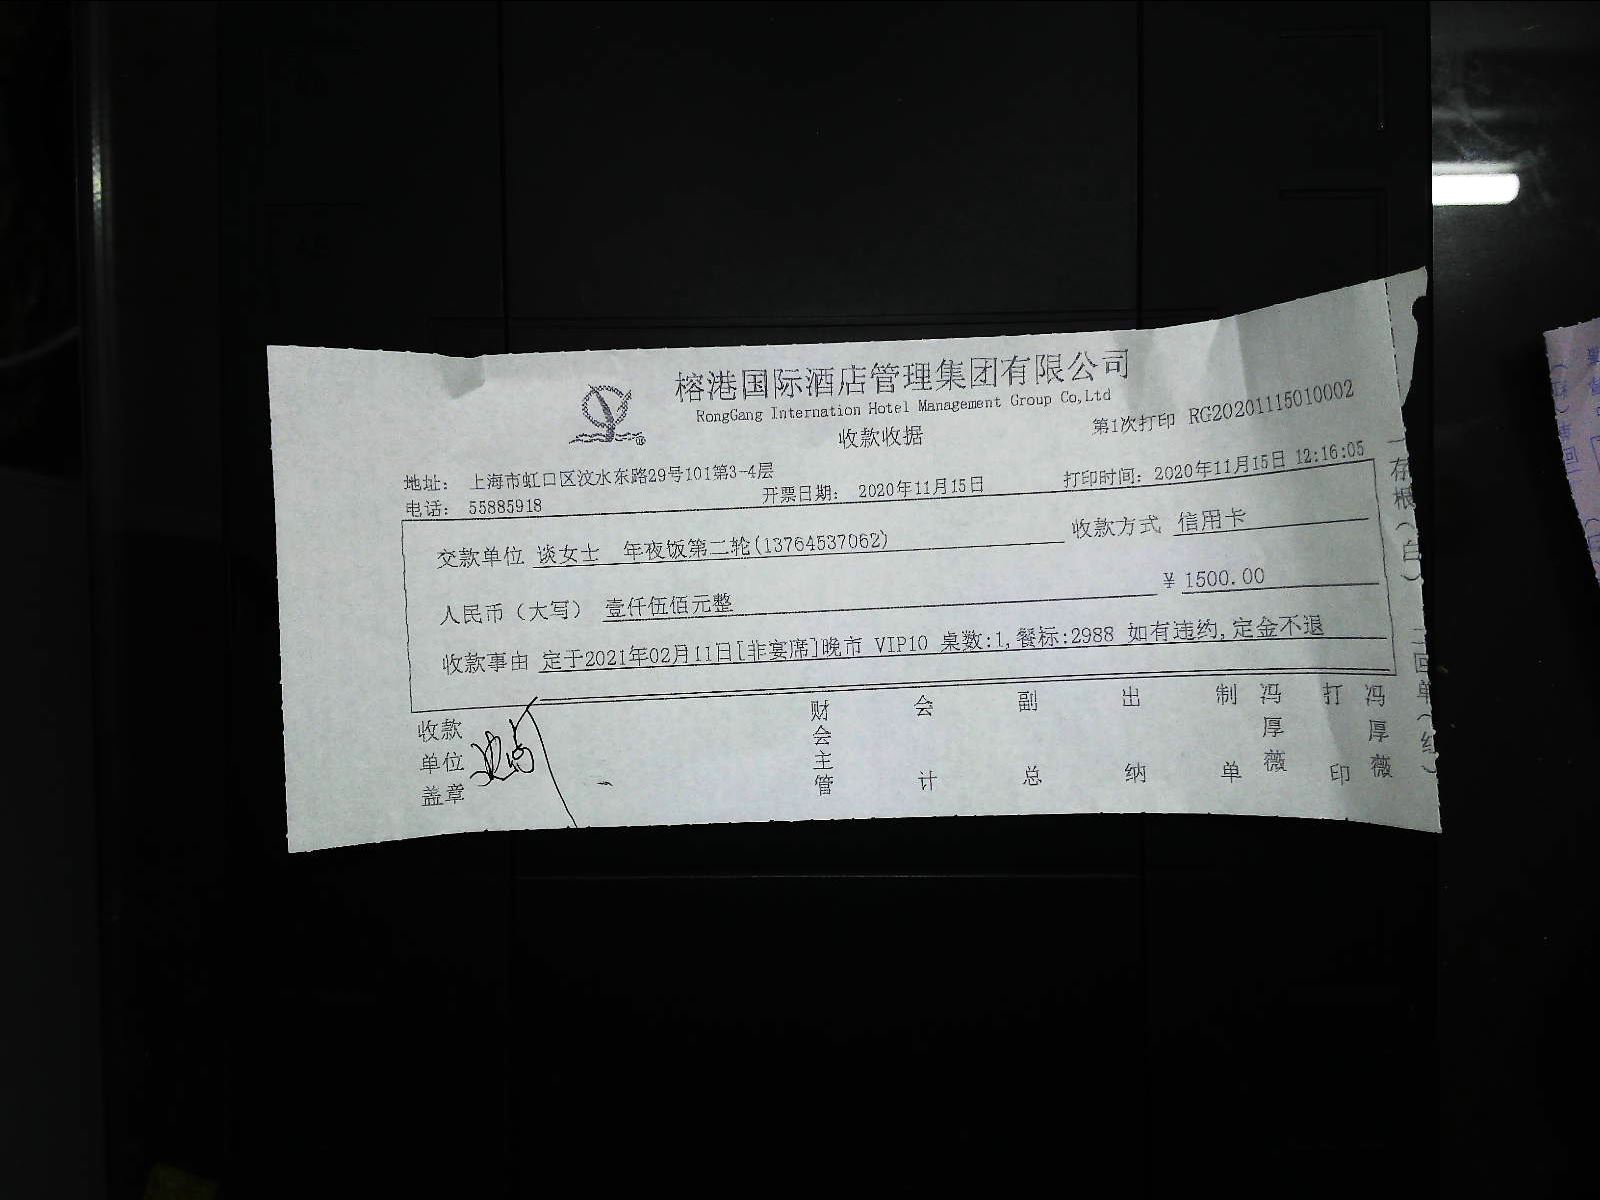 榕港国际酒店管理集团有限公司
RongGang Internation Hotel Management Group Co,Ltd
收款收据
第1次打印 RG20201115010002
地址： 上海市虹口区汶水东路29号101第3-4层
电话： 55885918
开票日期： 2020年11月15日
打印时间：2020年11月15日 12:16:05
交款单位 谈女士 年夜饭第二轮(13764537062)
收款方式 信用卡
人民币（大写） 壹仟伍佰元整
¥ 1500.00
收款事由 定于2021年02月11日[非宴席]晚市 VIP10 桌数:1,餐标:2988 如有违约,定金不退
收款单位盖章
财会主管
会计
副总
出纳
制单
冯厚薇
打印
冯厚薇
一存根(白) 二回单(红)